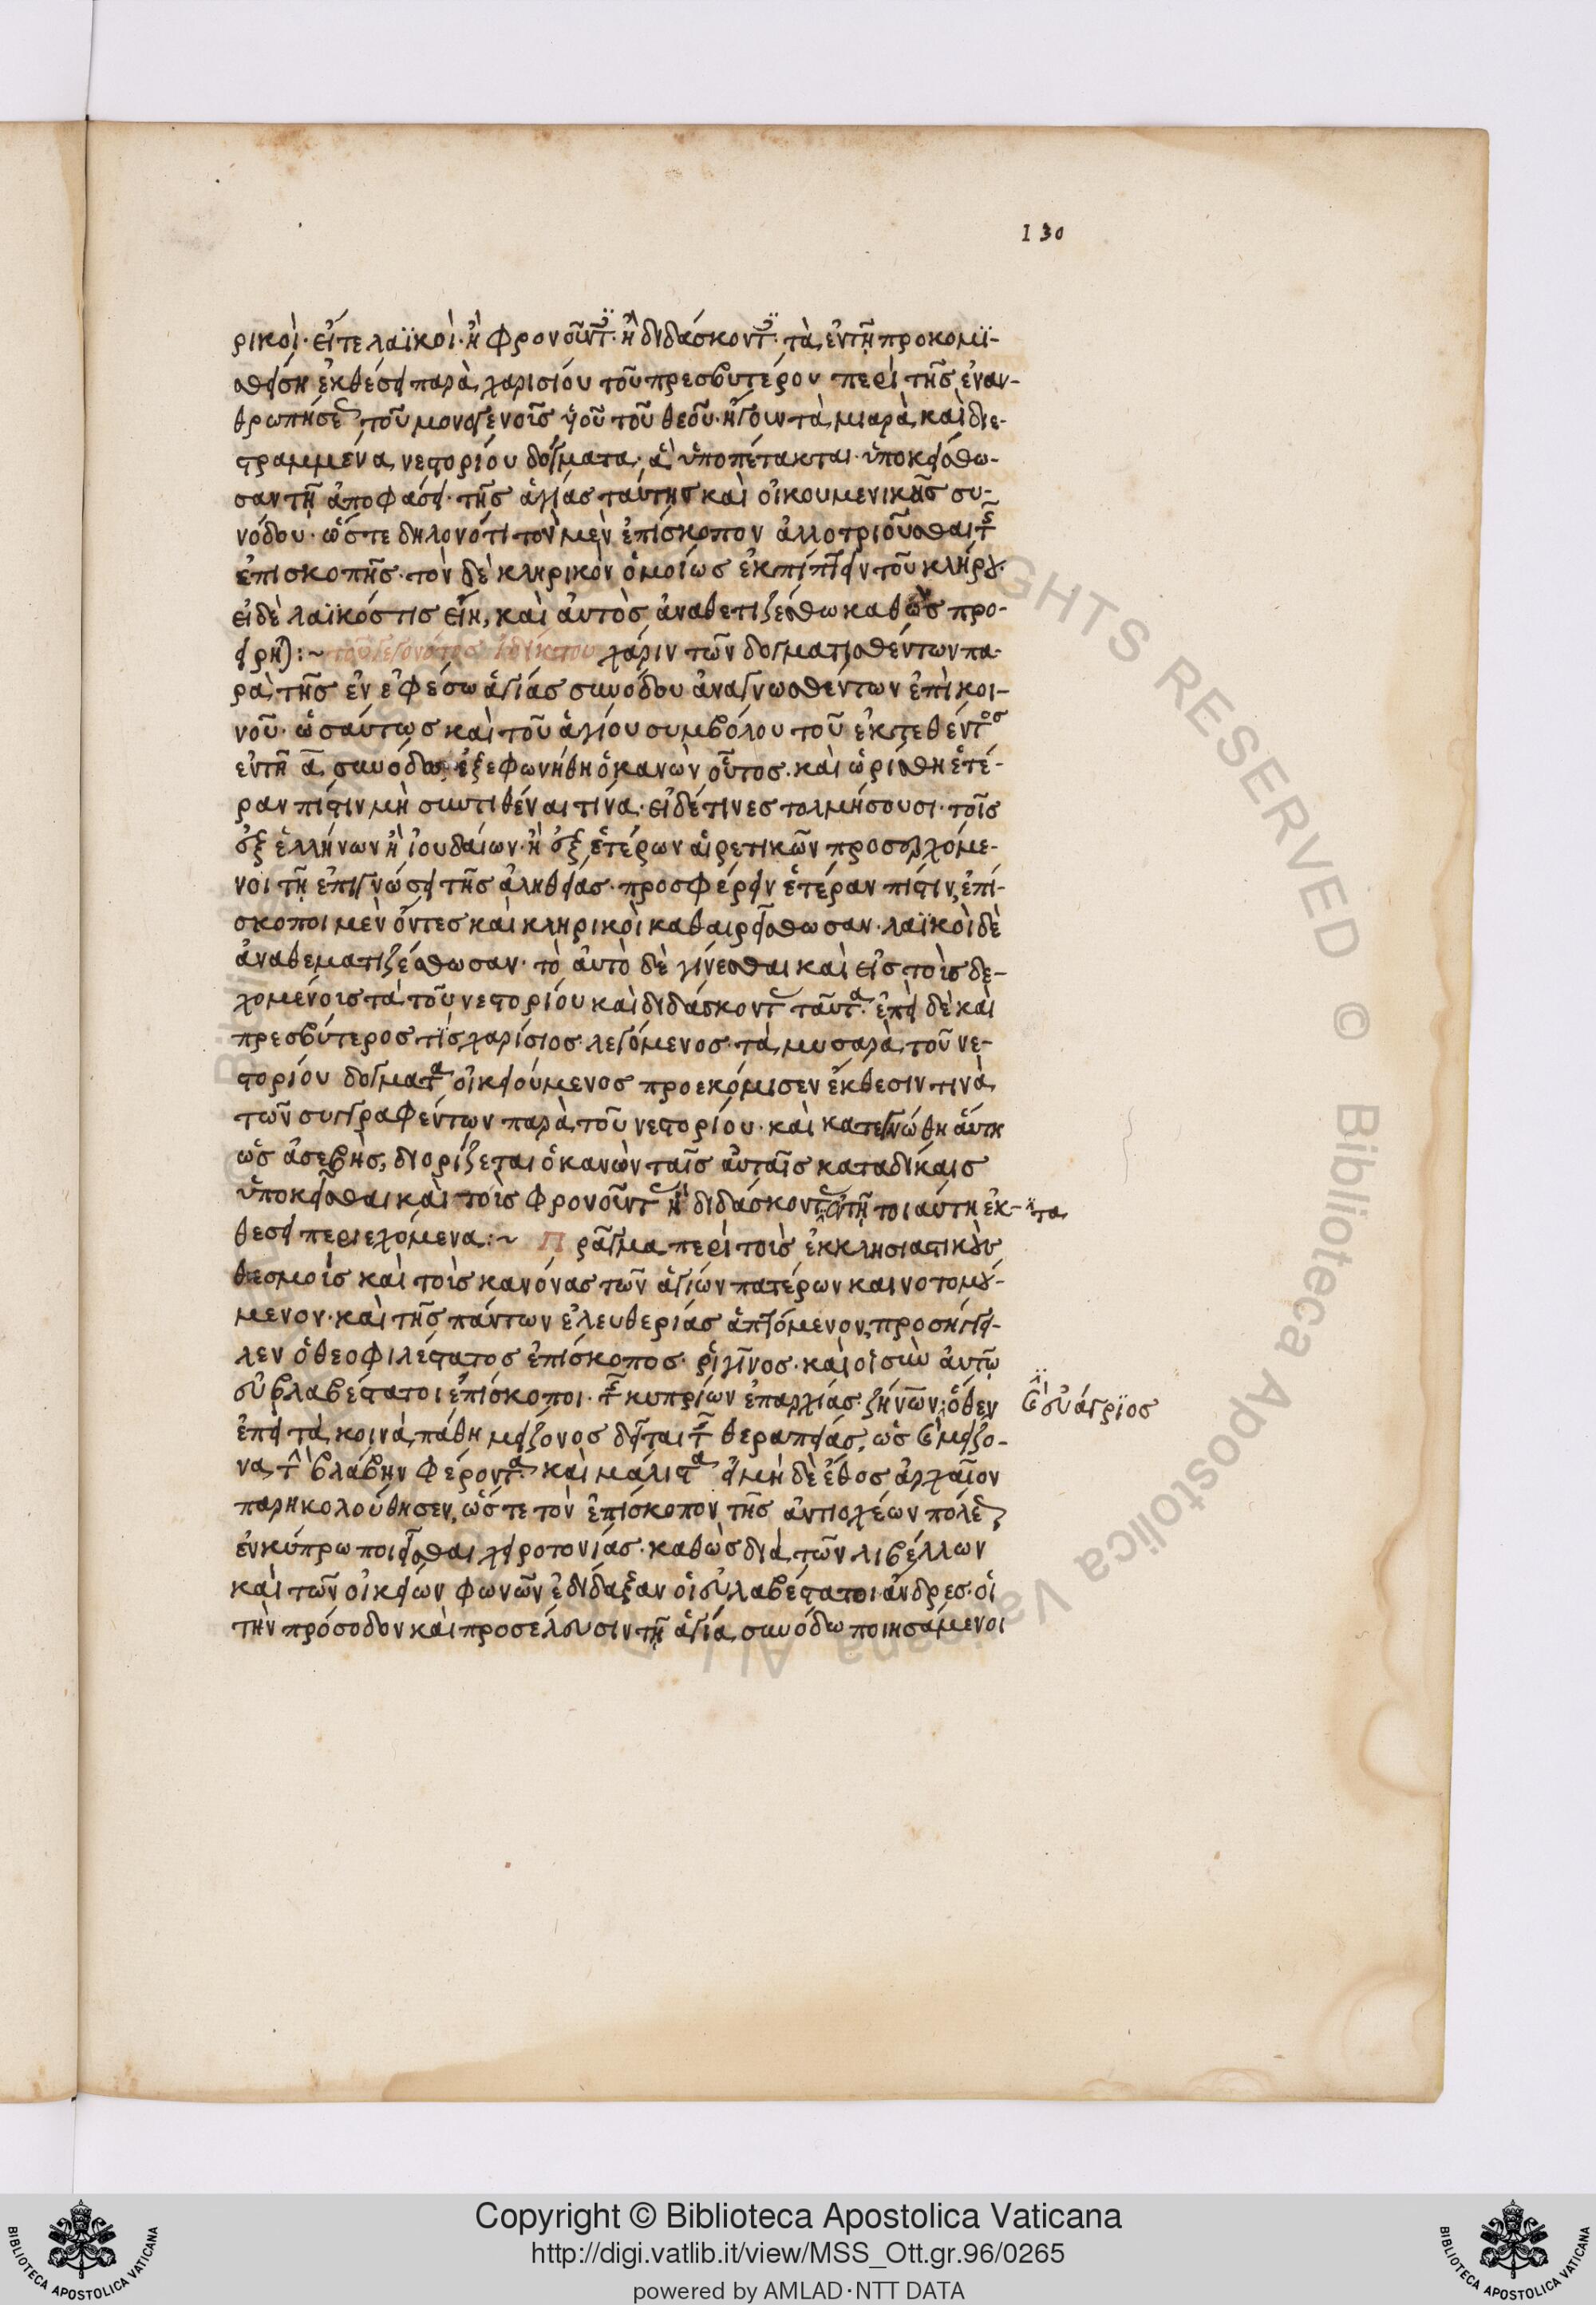 130
ρικοὶ· εἴτε λαϊκοὶ· ἢ φρονοῦντες· ἢ διδάσκοντες· τὰ ἐν τῇ προκομϊ-
σθείσῃ ἐκθέσει παρὰ χαρισίου τοῦ πρεσβυτέρου περὶ τῆς ἐναν-
θρωπήσεως τοῦ μονογενοῦς ὑϊοῦ τοῦ θεοῦ· ἤγουν τὰ μιαρὰ καὶ διε-
στραμμένα νεστορίου δόγματα· ἃ ὑποτέτακται· ὑποκείσθω-
σαν τῇ ἀποφάσει· τῆς ἁγίας ταύτης καὶ οἰκουμενικῆς συ-
νόδου· ὥστε δηλονότι τὸν μὲν ἐπίσκοπον ἀλλοτριοῦσθαι τῆς
ἐπισκοπῆς· τὸν δὲ κληρικὸν ὁμοίως ἐκπίπτειν τοῦ κλήρου·
εἰ δὲ λαϊκός τις εἴη, καὶ αὐτὸς ἀναθετιζέσθω καθὼς προ-
είρηται :~ χάριν τῶν δογματισθέντων πα-
ρὰ τῆς ἐν ἐφέσω ἁγίας συνόδου ἀναγνωσθέντων ἐπὶ κοι-
νοῦ· ὡσαύτως καὶ τοῦ ἁγίου συμβόλου τοῦ ἐκτεθέντος
ἐν τῇ α συνόδω ἐξεφωνήθη ὁ κανὼν οὗτος· καὶ ὡρίσθη ἑτέ-
ραν πίστιν μὴ συντιθέναι τινά· εἰ δέ τινες τολμήσουσι· τοῖς
ἐξ ἑλλήνων ἢ ἰουδαίων· ἢ ἐξ ἑτέρων αἱρετικῶν προσερχόμε-
νοι τῇ ἐπιγνώσει τῆς ἀληθείας· προσφέρειν ἑτέραν πίστιν, ἐπί-
σκοποι μὲν ὄντες καὶ κληρικοὶ καθαιρείσθωσαν· λαϊκοὶ δὲ
ἀναθεματιζέσθωσαν· τὸ αὐτὸ δὲ γίνεσθαι καὶ εἰς τοὺς δε-
χομένους τὰ τοῦ νεστορίου καὶ διδάσκοντας ταῦτα· ἐπεὶ δὲ καὶ
πρεσβύτερος τὶς χαρίσιος λεγόμενος· τὰ μυσαρὰ τοῦ νε-
στορίου δόγματα οἰκειούμενος προεκόμισεν ἔκθεσιν τινὰ
τῶν συγγραφέντων παρὰ τοῦ νεστορίου· καὶ κατεγνώθη αὕτη
ὡς ἀσεβὴς, διορίζεται ὁ κανὼν ταῖς αὐταῖς καταδίκαις
ὑποκεῖσθαι καὶ τοὺς φρονοῦντας ἢ διδάσκοντας ἐν τῇ τοιαύτη ἐκ- τὰ
θέσει περιεχόμενα :~ Πρᾶγμα περὶ τοὺς ἐκκλησιαστικοὺς
θεσμοὺς καὶ τοὺς κανόνας τῶν ἁγίων πατέρων καινοτομού-
μενον· καὶ τῆς πάντων ἐλευθερίας ἁπτόμενον, προσήγγει-
λεν ὁ θεοφιλέστατος ἐπίσκοπος· ῥιγῖνος· καὶ οἱ σὺν αὐτῷ
εὐλαβέστατοι ἐπίσκοποι· τῆς κυπρίων ἐπαρχίας· ζήνων· ὅθεν
καὶ εὐάγριος
ἐπεὶ τὰ κοινὰ πάθη μείζονος δεῖται τῆς θεραπείας, ὡς καὶ μείζο-
να τὴν βλάβην φέροντα· καὶ μάλιστα εἰ μὴ δὲ ἔθος ἀρχαῖον
παρηκολούθησεν, ὥστε τὸν ἐπίσκοπον τῆς ἀντιοχέων πόλεως
ἐν κύπρω ποιεῖσθαι χειροτονίας· καθὼς διὰ τῶν λιβέλλων
καὶ τῶν οἰκείων φωνῶν ἐδίδαξαν οἱ εὐλαβέστατοι ἄνδρες· οἱ
τὴν πρόσοδον καὶ προσέλευσιν τῇ ἁγία συνόδω ποιησάμενοι
Copyright © Biblioteca Apostolica Vaticana
http://digi.vatlib.it/view/MSS_Ott.gr.96/0265
powered by AMLAD·NTT DATA